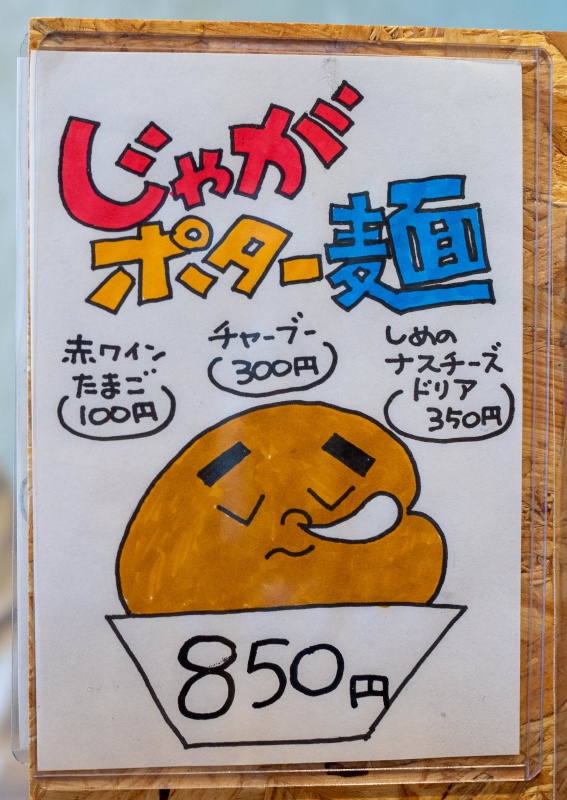 じゃが
ポター麺
赤ワイン
たまご
100円
チャーブー
300円
しめの
ナスチーズ
ドリア
350円
850円